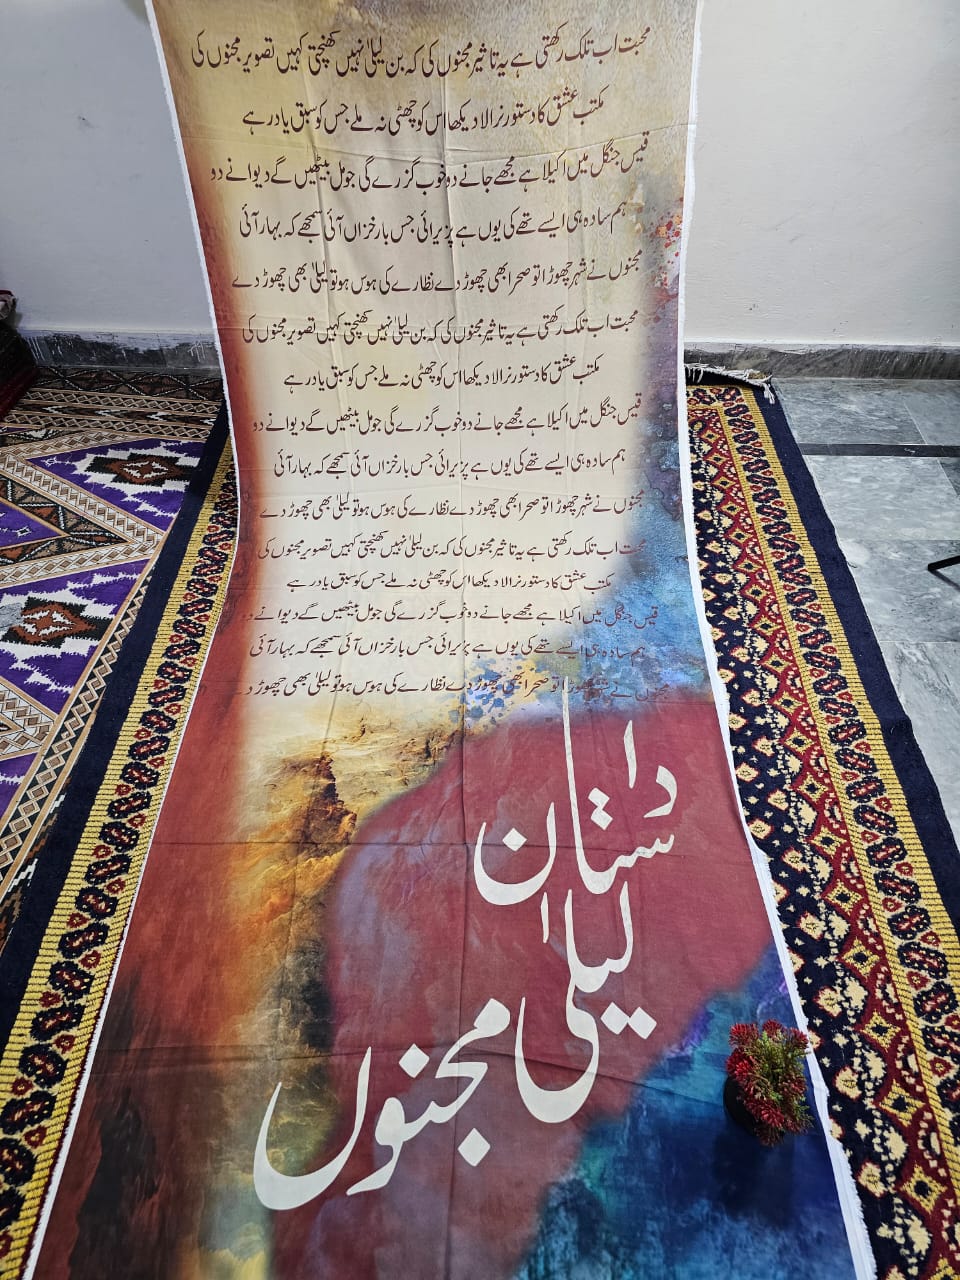 محبت اب تلک رکھتی ہے یہ تاثیر مجنوں کی کہ بن لیلیٰ نہیں کھنچتی کہیں تصویر مجنوں کی
مکتب عشق کا دستور نرالا دیکھا اس کو چھٹی نہ ملے جس کو سبق یاد رہے
قیس جنگل میں اکیلا ہے مجھے جانے دو خوب گزرے گی جو مل بیٹھیں گے دیوانے دو
ہم سادہ ہی ایسے تھے کی یوں ہے پزیرائی جس بار خزاں آئی سمجھے کہ بہار آئی
مجنوں نے شہر چھوڑا تو صحرا بھی چھوڑ دے نظارے کی ہوس ہو تو لیلیٰ بھی چھوڑ دے
محبت اب تلک رکھتی ہے یہ تاثیر مجنوں کی کہ بن لیلیٰ نہیں کھنچتی کہیں تصویر مجنوں کی
مکتب عشق کا دستور نرالا دیکھا اس کو چھٹی نہ ملے جس کو سبق یاد رہے
قیس جنگل میں اکیلا ہے مجھے جانے دو خوب گزرے گی جو مل بیٹھیں گے دیوانے دو
ہم سادہ ہی ایسے تھے کی یوں ہے پزیرائی جس بار خزاں آئی سمجھے کہ بہار آئی
مجنوں نے شہر چھوڑا تو صحرا بھی چھوڑ دے نظارے کی ہوس ہو تو لیلیٰ بھی چھوڑ دے
محبت اب تلک رکھتی ہے یہ تاثیر مجنوں کی کہ بن لیلیٰ نہیں کھنچتی کہیں تصویر مجنوں کی
مکتب عشق کا دستور نرالا دیکھا اس کو چھٹی نہ ملے جس کو سبق یاد رہے
قیس جنگل میں اکیلا ہے مجھے جانے دو خوب گزرے گی جو مل بیٹھیں گے دیوانے دو
ہم سادہ ہی ایسے تھے کی یوں ہے پزیرائی جس بار خزاں آئی سمجھے کہ بہار آئی
مجنوں نے شہر چھوڑا تو صحرا بھی چھوڑ دے نظارے کی ہوس ہو تو لیلیٰ بھی چھوڑ دے
داستان
لیلیٰ
مجنوں